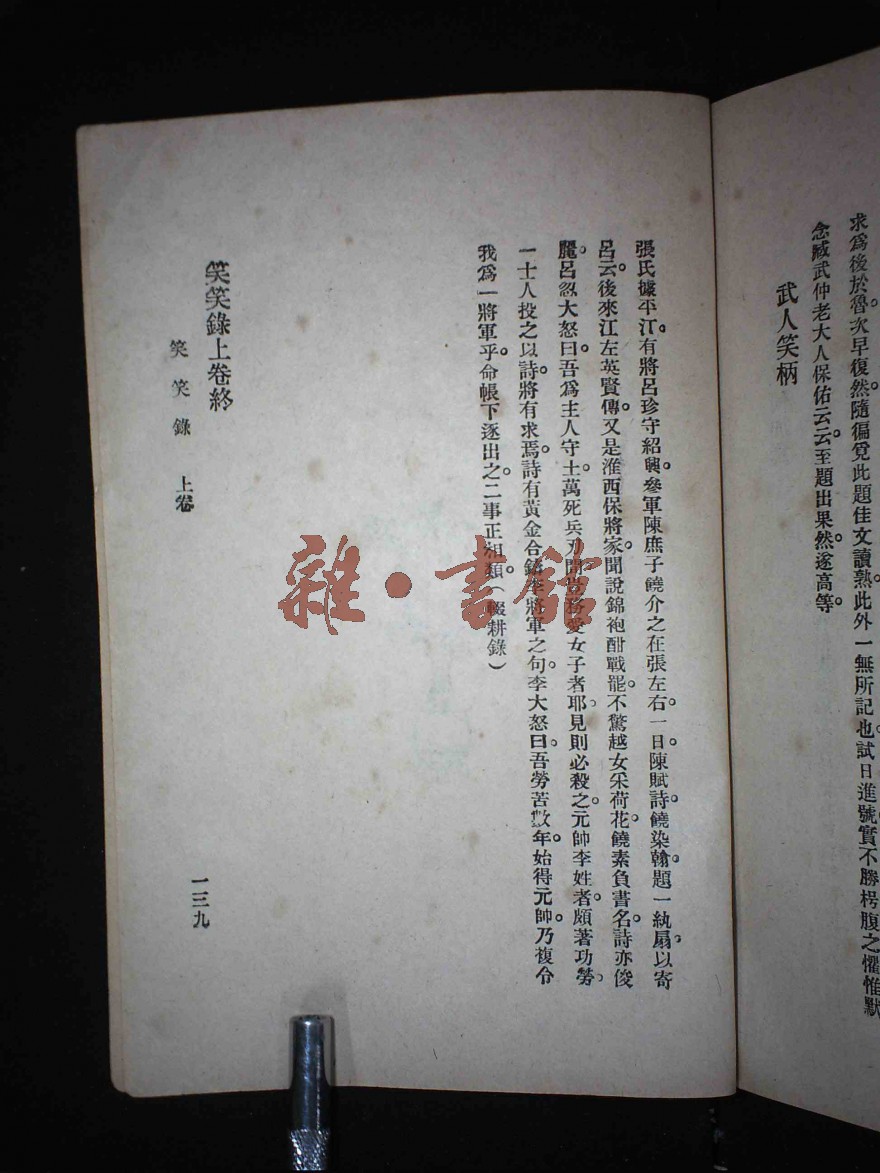 求爲後於魯次早復然隨徧覓此題佳文讀熟此外一無所記也試日進號實不勝枵腹之懼惟默
念臧武仲老大人保佑云云至題出果然遂高等。
武人笑柄
張氏據平江。有將呂珍守紹興。參軍陳庶子饒介之在張左右。一日。陳賦詩。饒染翰。題一紈扇。以寄
呂云。後來江左英賢傳。又是淮西保將家。聞說錦袍酣戰罷。不驚越女采荷花。饒素負書名。詩亦俊
麗。呂忽大怒曰。吾爲主人守土。萬死兵刃間。豈務愛女子者耶。見則必殺之。元帥李姓者。頗著功勞。
一士人投之以詩。將有求焉。詩有黃金合鑄李將軍之句。李大怒曰。吾勞苦數年。始得元帥。乃複令
我爲一將軍乎。命帳下逐出之。二事正相類。(輟耕錄)
笑笑錄上卷終
笑笑錄 上卷
一三九
雜·書館